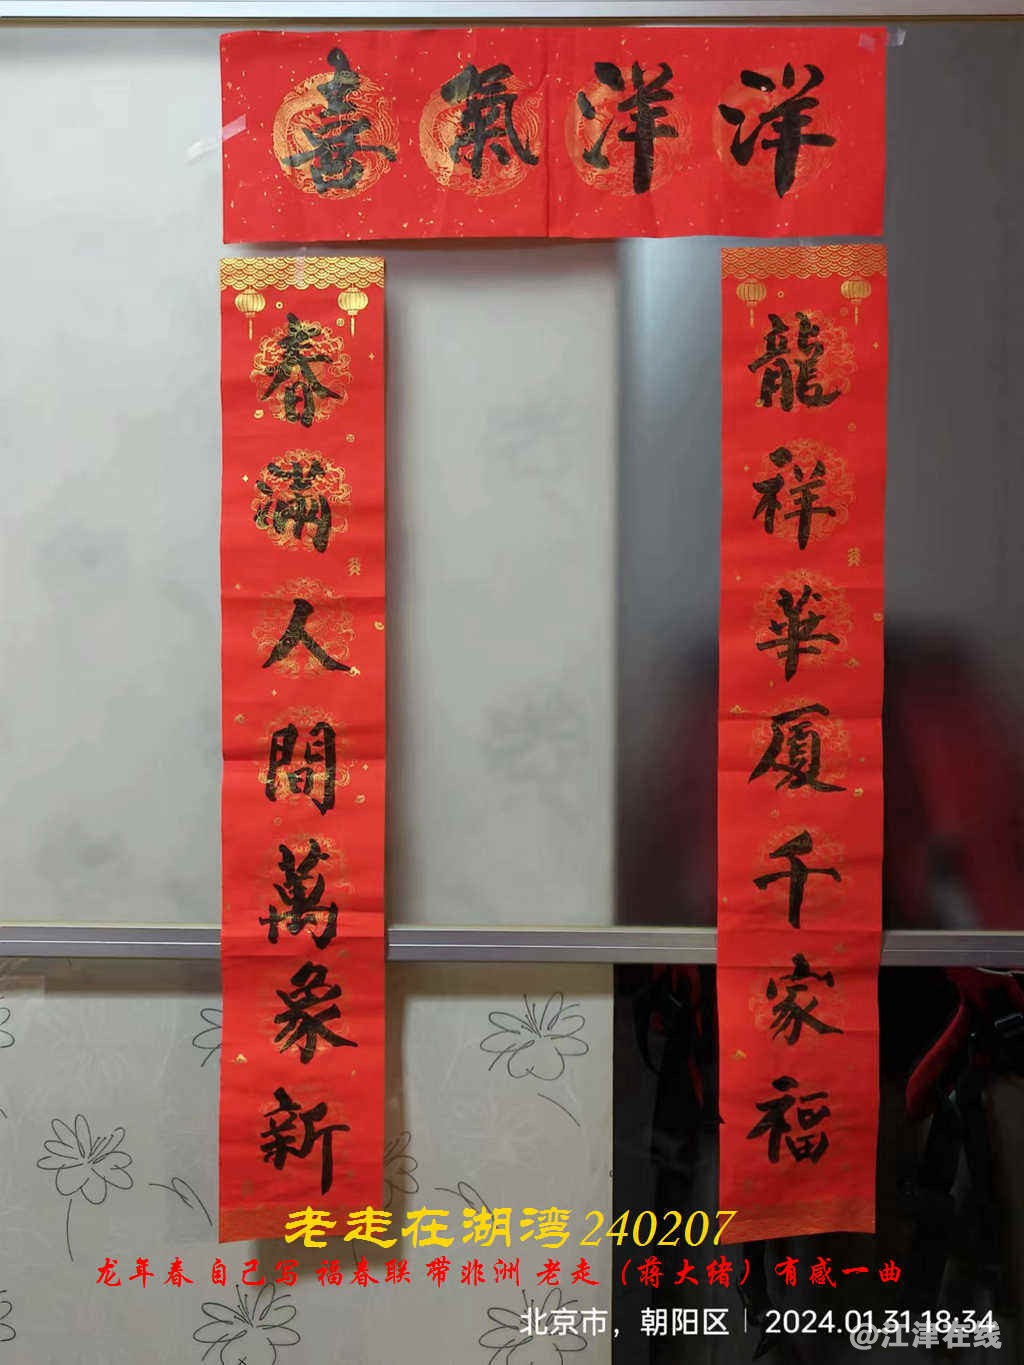 喜氣洋洋
龍祥華厦千家福
春滿人間萬象新
老走在湖湾240207
龙年春自己写福春联带非洲老走（蒋大绪）有感一曲
北京市，朝阳区 | 2024.01.31 18:34
@江津在线